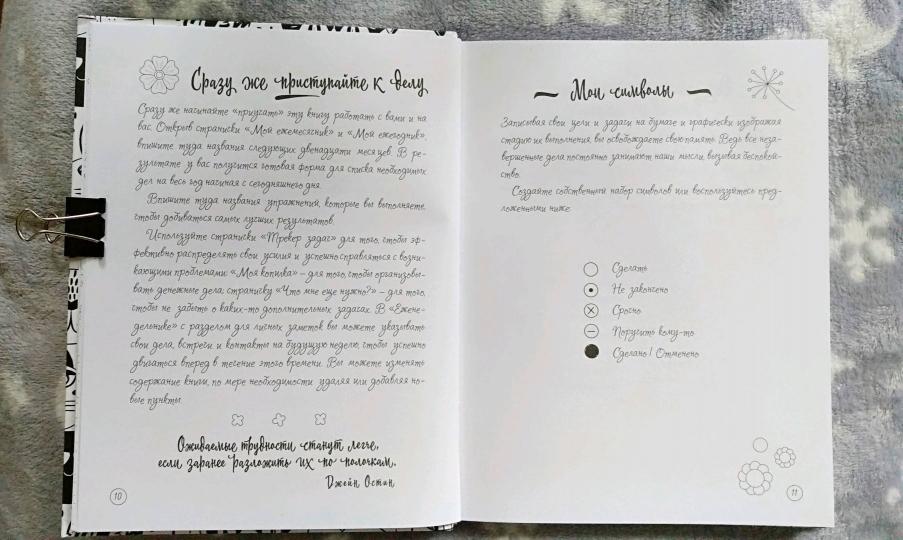 Сразу же приступайте к делу
Сразу же начинайте «приучать» эту книгу работать с вами и на
вас. Открыв страницы «Мой ежемесячник» и «Мой ежегодник»,
впишите туда названия следующих двенадцати месяцев. В ре-
зультате у вас получится готовая форма для списка необходимых
дел на весь год начиная с сегодняшнего дня.
Впишите туда названия упражнений, которые вы выполняете,
чтобы добиваться самых лучших результатов.
Используйте страницы «Трекер задач» для того, чтобы эф-
фективно распределять свои усилия и успешно справляться с возни-
кающими проблемами; «Моя копилка» – для того, чтобы организовы-
вать денежные дела; страницу «Что мне еще нужно?» – для того,
чтобы не забыть о каких-то дополнительных задачах. В «Ежене-
дельнике» с разделом для личных заметок вы можете указывать
свои дела, встречи и контакты на будущую неделю, чтобы успешно
двигаться вперед в течение этого времени. Вы можете изменять
содержание книги, по мере необходимости удаляя или добавляя но-
вые пункты.
Ожидаемые трудности станут легче,
если заранее разложить их по полочкам.
Джейн Остин
10
Мои символы
Записывая свои цели и задачи на бумаге и графически изображая
стадию их выполнения, вы освобождаете свою память. Ведь все неза-
вершенные дела постоянно занимают наши мысли, вызывая беспокой-
ство.
Создайте собственный набор символов или воспользуйтесь пред-
ложенными ниже.
Сделать
Не закончено
Срочно
Поручить кому-то
Сделано! Отменено
11